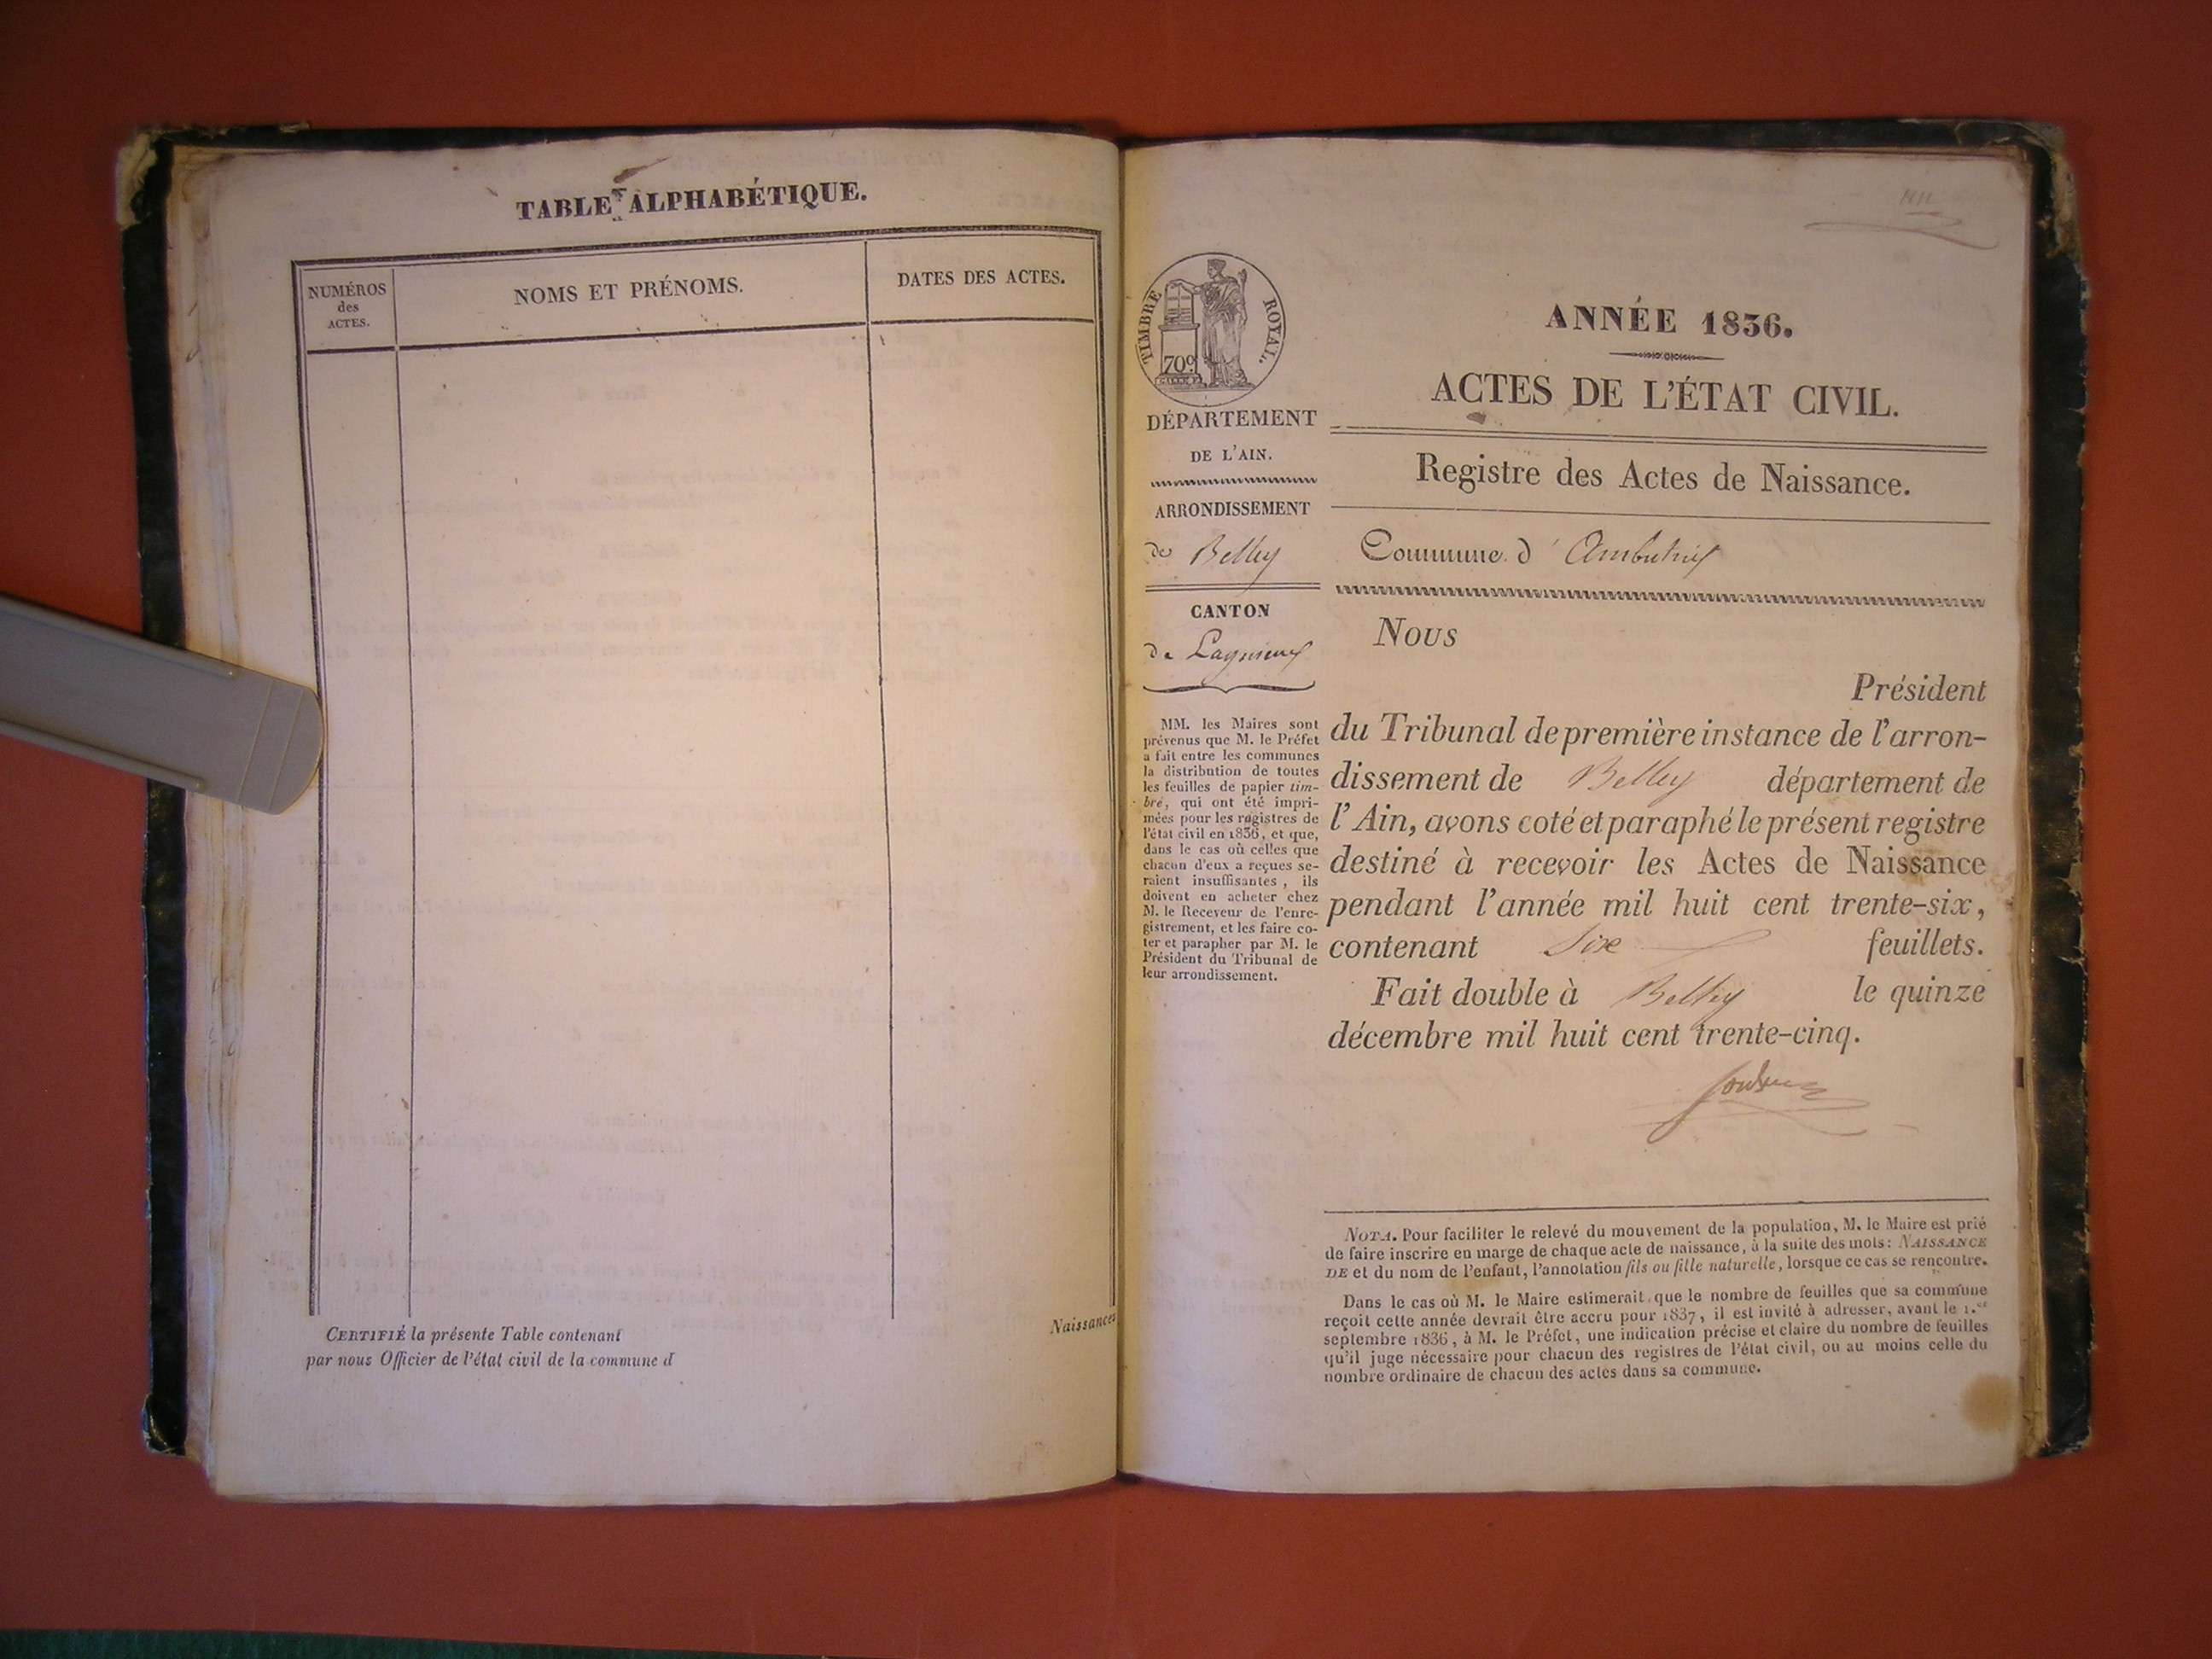 TABLE ALPHABÉTIQUE.
NUMÉROS
des
ACTES.
NOMS ET PRÉNOMS.
DATES DES ACTES.
CERTIFIÉ la présente Table contenant
par nous Officier de l'état civil de la commune d
Naissances
TIMBRE ROYAL.
70c
DÉPARTEMENT
DE L'AIN.
ARRONDISSEMENT
de Belley
CANTON
de Lagnieux
MM. les Maires sont
prévenus que M. le Préfet
a fait entre les communes
la distribution de toutes
les feuilles de papier tim-
bré, qui ont été impri-
mées pour les régistres de
l'état civil en 1836, et que,
dans le cas où celles que
chacun d'eux a reçues se-
raient insuffisantes, ils
doivent en acheter chez
M. le Receveur de l'enre-
gistrement, et les faire co-
ter et parapher par M. le
Président du Tribunal de
leur arrondissement.
ANNÉE 1836.
ACTES DE L'ÉTAT CIVIL.
Registre des Actes de Naissance.
Commune d' Ambutrix
Nous
Président
du Tribunal de première instance de l'arron-
dissement de Belley département de
l'Ain, avons coté et paraphé le présent registre
destiné à recevoir les Actes de Naissance
pendant l'année mil huit cent trente-six,
contenant Six feuillets.
Fait double à Belley le quinze
décembre mil huit cent trente-cinq.
NOTA. Pour faciliter le relevé du mouvement de la population, M. le Maire est prié
de faire inscrire en marge de chaque acte de naissance, à la suite des mots: NAISSANCE
DE et du nom de l'enfant, l'annotation fils ou fille naturelle, lorsque ce cas se rencontre.
Dans le cas où M. le Maire estimerait que le nombre de feuilles que sa commune
reçoit cette année devrait être accru pour 1837, il est invité à adresser, avant le 1.er
septembre 1836, à M. le Préfet, une indication précise et claire du nombre de feuilles
qu'il juge nécessaire pour chacun des registres de l'état civil, ou au moins celle du
nombre ordinaire de chacun des actes dans sa commune.